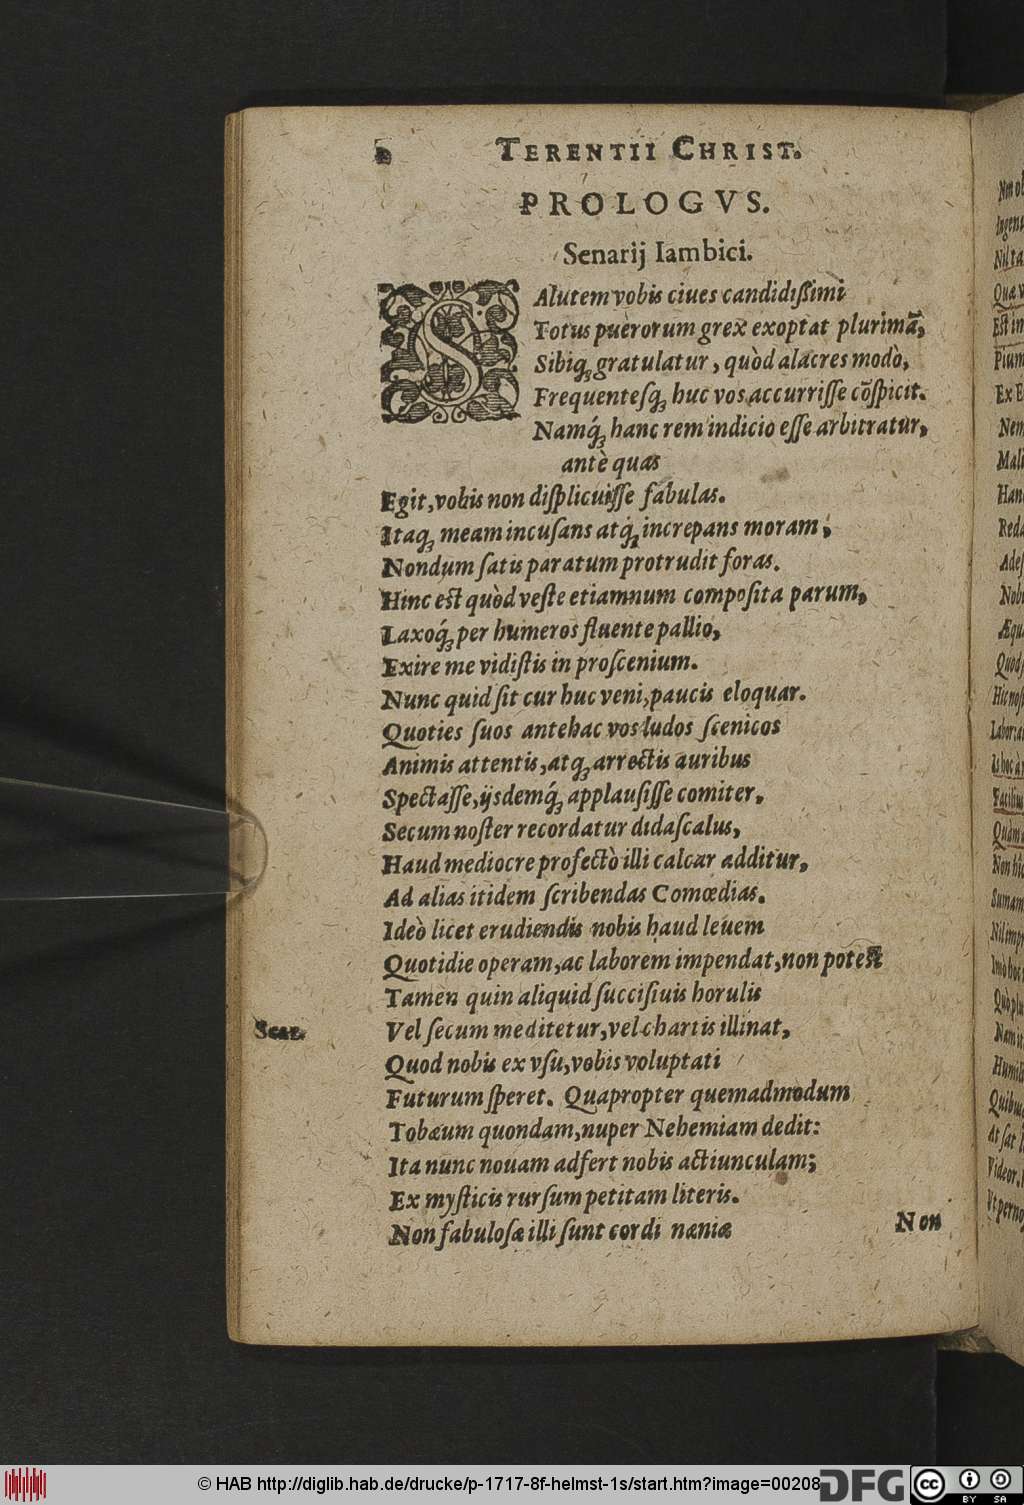 TERENTII CHRIST.
PROLOGVS.
Senarij Iambici.
SAlutem vobis ciues candidißimi
Totus puerorum grex exoptat plurimã,
Sibiq; gratulatur, quòd alacres modò,
Frequentesq; huc vos accurriſſe cõſpicit.
Namq́; hanc rem indicio eſſe arbitratur,
antè quas
Egit, vobis non diſplicuiſſe fabulas.
Itaq; meam incuſans atq́; increpans moram,
Nondum ſatis paratum protrudit foras.
Hinc eſt quòd veſte etiamnum compoſita parum,
Laxoq́; per humeros fluente pallio,
Exire me vidiſtis in proſcenium.
Nunc quid ſit cur huc veni, paucis eloquar.
Quoties ſuos antehac vos ludos ſcenicos
Animis attentis, atq; arrectis auribus
Spectaſſe, ijsdemq́; applauſiſſe comiter,
Secum noſter recordatur didaſcalus,
Haud mediocre profectò illi calcar additur,
Ad alias itidem ſcribendas Comœdias.
Ideò licet erudiendis nobis haud leuem
Quotidie operam, ac laborem impendat, non poteſt
Tamen quin aliquid ſucciſiuis horulis
Vel ſecum meditetur, vel chartis illinat,
Quod nobis ex vſu, vobis voluptati
Futurum ſperet. Quapropter quemadmodum
Tobæum quondam, nuper Nehemiam dedit:
Ita nunc nouam adfert nobis actiunculam;
Ex myſticis rurſum petitam literis.
Non fabuloſæ illi ſunt cordi næniæ
Non
© HAB http://diglib.hab.de/drucke/p-1717-8f-helmst-1s/start.htm?image=00208
DFG
cc BY SA